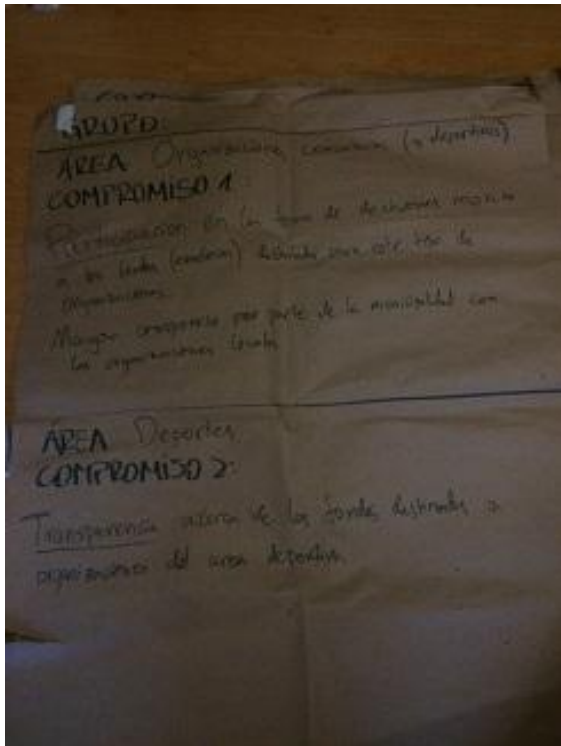 GRUPO:
ÁREA Organizaciones comunitarias (o deportivas)
COMPROMISO 1:
Participación en la toma de decisiones
a los fondos destinados para este tipo de
organizaciones
Mayor transparencia por parte de la municipalidad con
las organizaciones locales
ÁREA Deportes
COMPROMISO 2:
Transparencia acerca de los fondos destinados a
organizaciones del area deportiva.